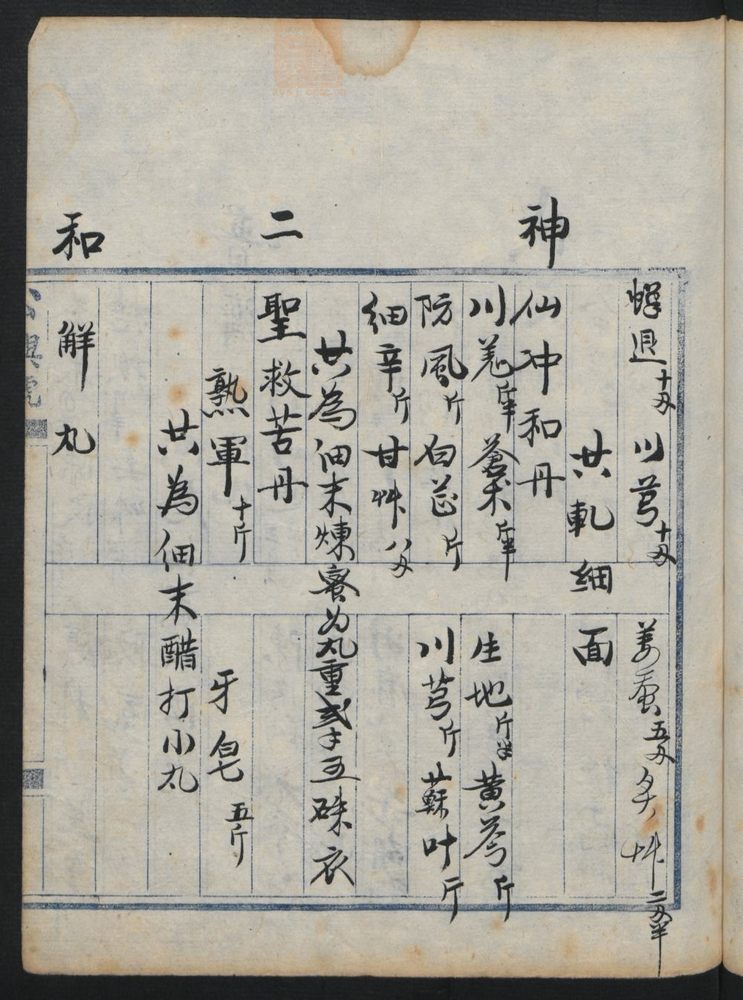 蟬退十兩 川芎十兩 姜蚕五兩 炙艸二兩半
共軋細面
神仙冲和丹
川羌斤半 蒼朮斤半 生地斤半 黄芩斤
防風斤 白芷斤 川芎斤 蘇叶斤
細辛斤 甘艸八兩
共為細末煉蜜为丸重弍𠆤五硃衣
二聖救苦丹
熟軍十斤 牙皂五斤
共為細末醋打小丸
和解丸
興號